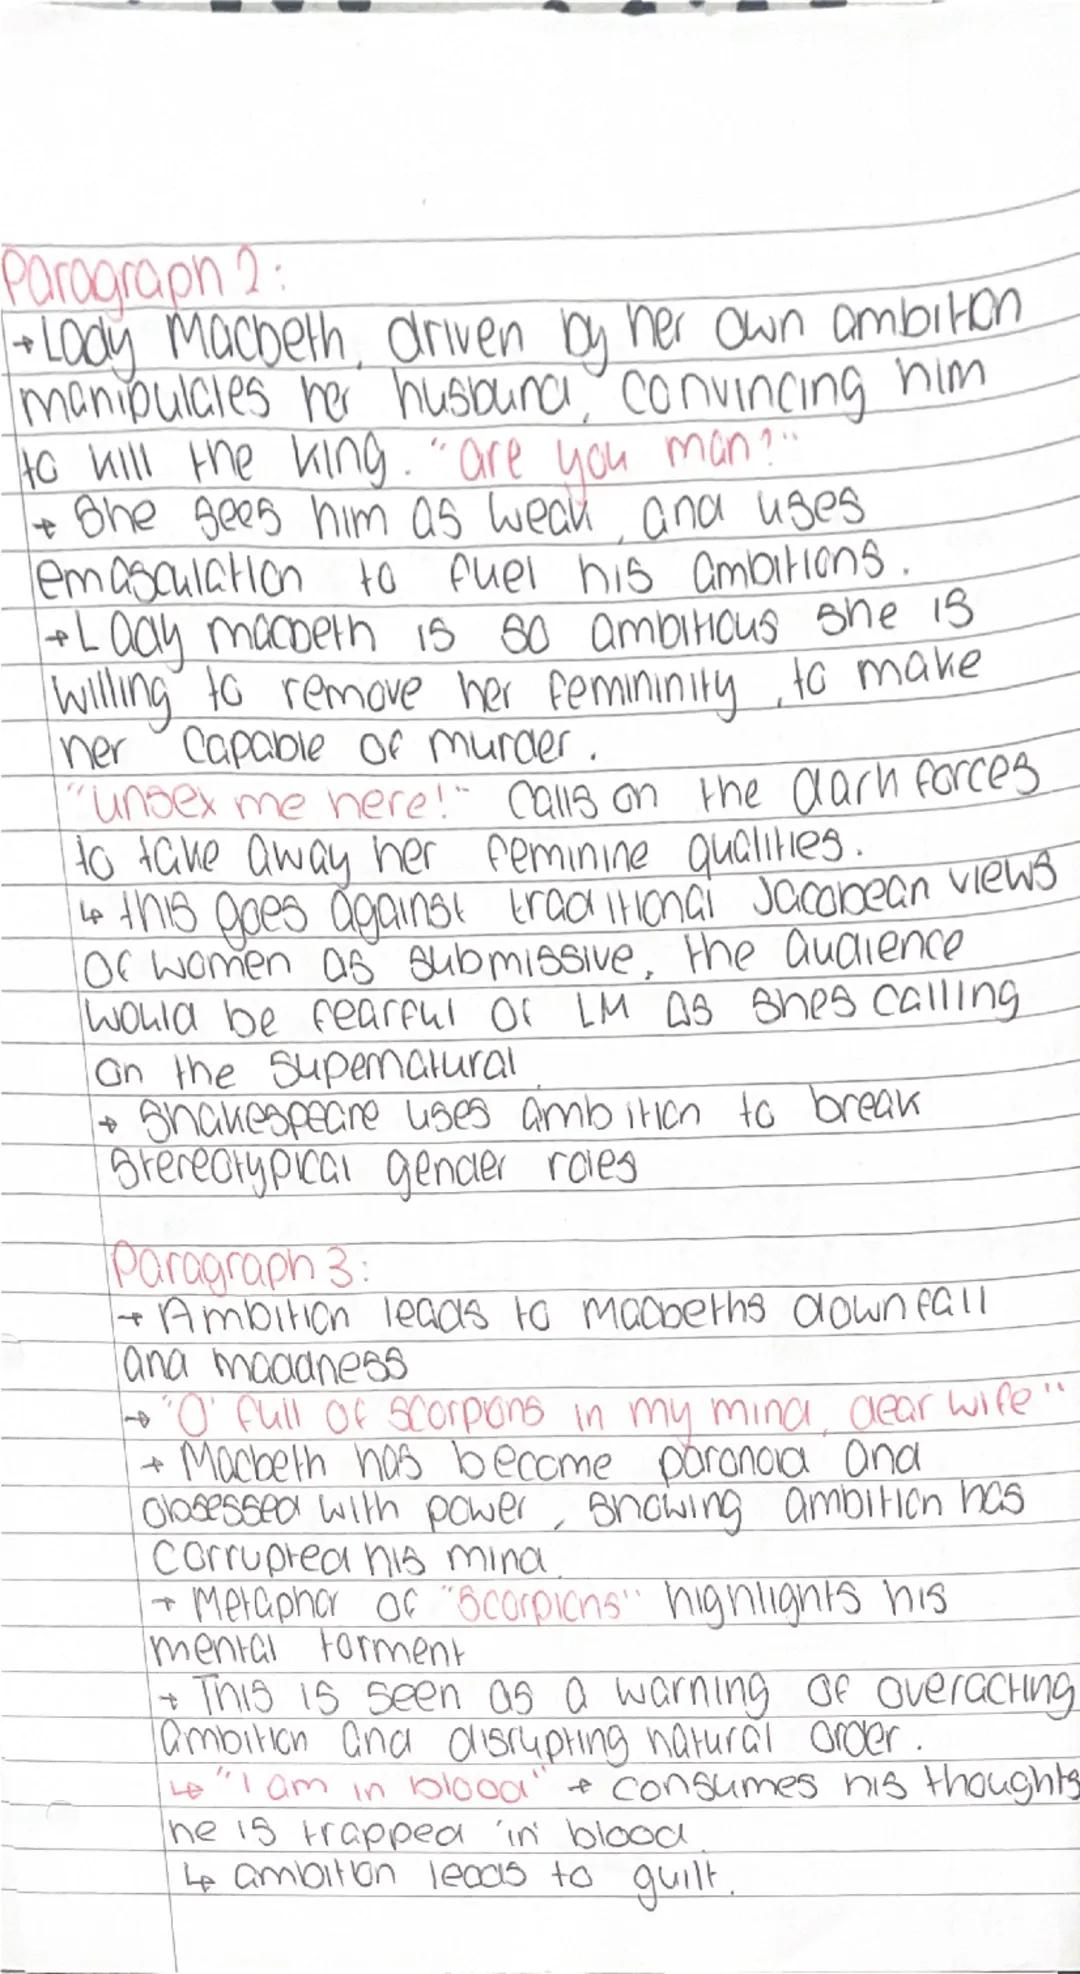 Paragraph 2:
→ Lady Macbeth, driven by her own ambition
manipulates her husband, convincing him
to kill the king. "are you man?"
→ She sees him as weak, and uses
emasculation to fuel his ambitions.
→ Lady macbeth is so ambitious she is
willing to remove her femininity, to make
her capable of murder.
"unsex me here!" calls on the dark forces
to take away her feminine qualities.
↳ this goes against traditional Jacobean views
of women as submissive, the audience
would be fearful of LM as shes calling
on the supernatural.
→ Shakespeare uses ambition to break
stereotypical gender roles
Paragraph 3:
→ Ambition leads to macbeths downfall
and maadness
→ "O' full of scorpions in my mind, dear wife"
→ Macbeth has become paranoid and
obsessed with power, showing ambition has
corrupted his mind.
→ Metaphor of "Scorpions" highlights his
mental torment
→ This is seen as a warning of overacting
ambition and disrupting natural order.
↳ "I am in blood" → consumes his thoughts
he is trapped 'in' blood.
↳ ambition leads to guilt.